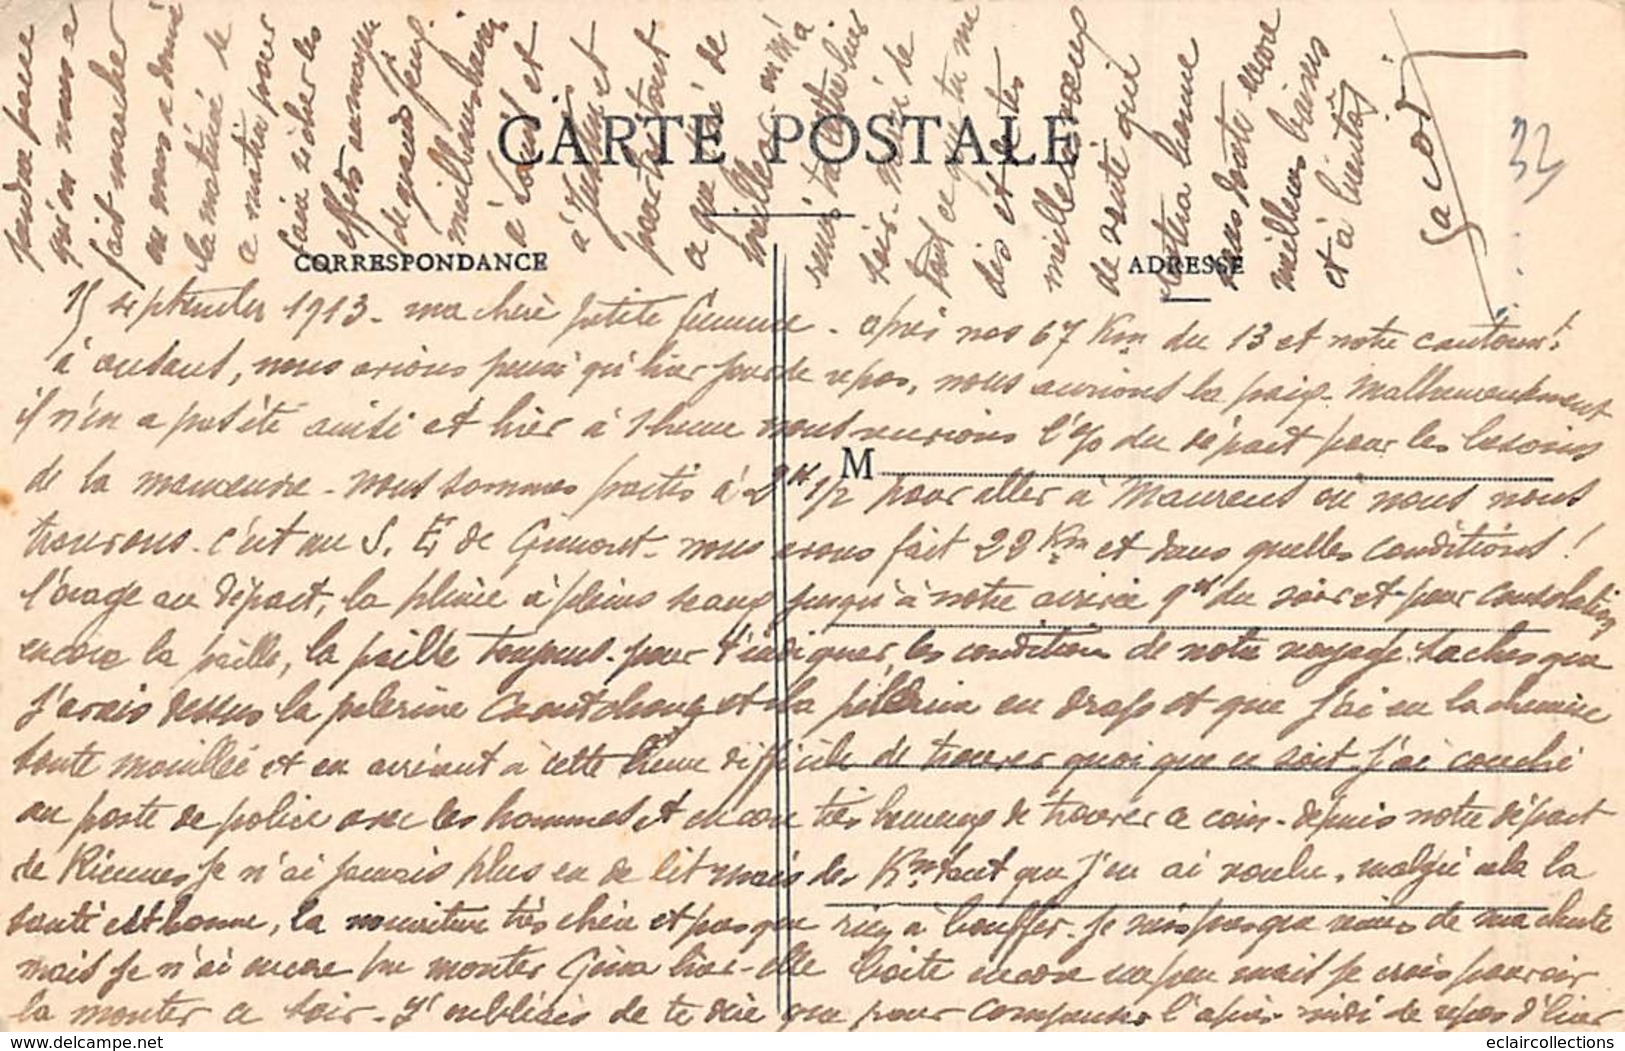 CARTE POSTALE
CORRESPONDANCE
ADRESSE
M
32
15 septembre 1913 - ma chère petite femme - après nos 67 Km du 13 et notre cantonnt
à autant, nous avions pensé qu'hier jour de repos, nous aurions la paix. Malheureusement
il n'en a pas été ainsi et hier à 1 heure nous recevions l'ordre du départ pour les besoins
de la manœuvre - nous sommes partis à 2H 1/2 pour aller à Maurens où nous nous
trouvons. c'est au S. E. de Gimont - nous avons fait 28 Km et dans quelles conditions !
l'orage au départ, la pluie à pleins seaux jusqu'à notre arrivée 9H du soir et pour consolation
encore la paille, la paille toujours - pour t'indiquer les conditions de notre voyage saches que
j'avais dessus la pelerine caoutchouc et la pélerine en drap et que j'ai eu la chemise
toute mouillée et en arrivant à cette heure difficile de trouver quoi que ce soit. J'ai couché
au poste de police avec les hommes et encore très heureux de trouver ce coin - depuis notre départ
de Rieumes je n'ai jamais plus eu de lit mais des Km tant que j'en ai voulu, malgré cela la
santé est bonne, la nourriture très chère et presque rien à bouffer - je n'ai presque rien de ma chute
mais je n'ai encore pu monter Gina hier - elle boite encore un peu mais je crois pouvoir
la monter ce soir - J'oubliais de te dire que pour compenser l'après midi de repos d'hier
perdu parce
qu'on nous a
fait marcher
on nous a donné
la matinée de
ce matin pour
faire sécher les
effets
de
meilleurs baisers
à Louis et
à Juliette et
partout
ce que de
meilleur - on m'a
remis ta lettre hier
soir - merci de
tout ce que tu me
dis et des
meilleurs vœux
de santé que
notre bonne
sans doute encore
meilleurs baisers
et à bientôt
Gacod
eclaircollections